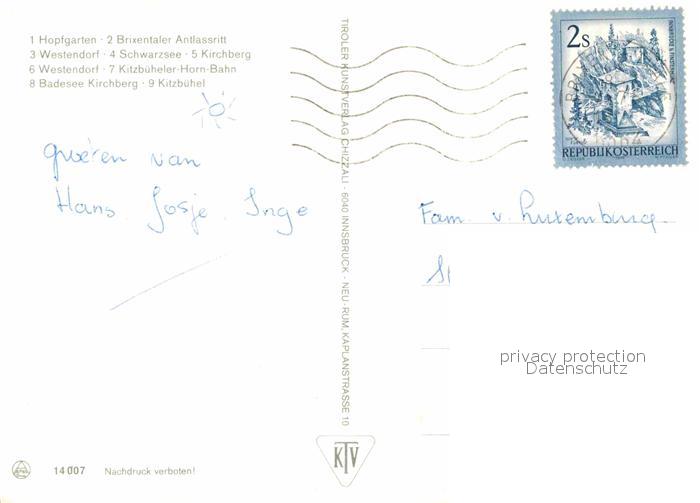 1 Hopfgarten · 2 Brixentaler Antlassritt
3 Westendorf · 4 Schwarzsee · 5 Kirchberg
6 Westendorf · 7 Kitzbüheler-Horn-Bahn
8 Badesee Kirchberg · 9 Kitzbühel
groeten van
Hans. Josje. Inge
TIROLER KUNSTVERLAG CHIZZALI · 6040 INNSBRUCK - NEU-RUM, KAPLANSTRASSE 10
KTV
14007 Nachdruck verboten!
2s
REPUBLIK ÖSTERREICH
Fam. v. Luxemburg
privacy protection
Datenschutz